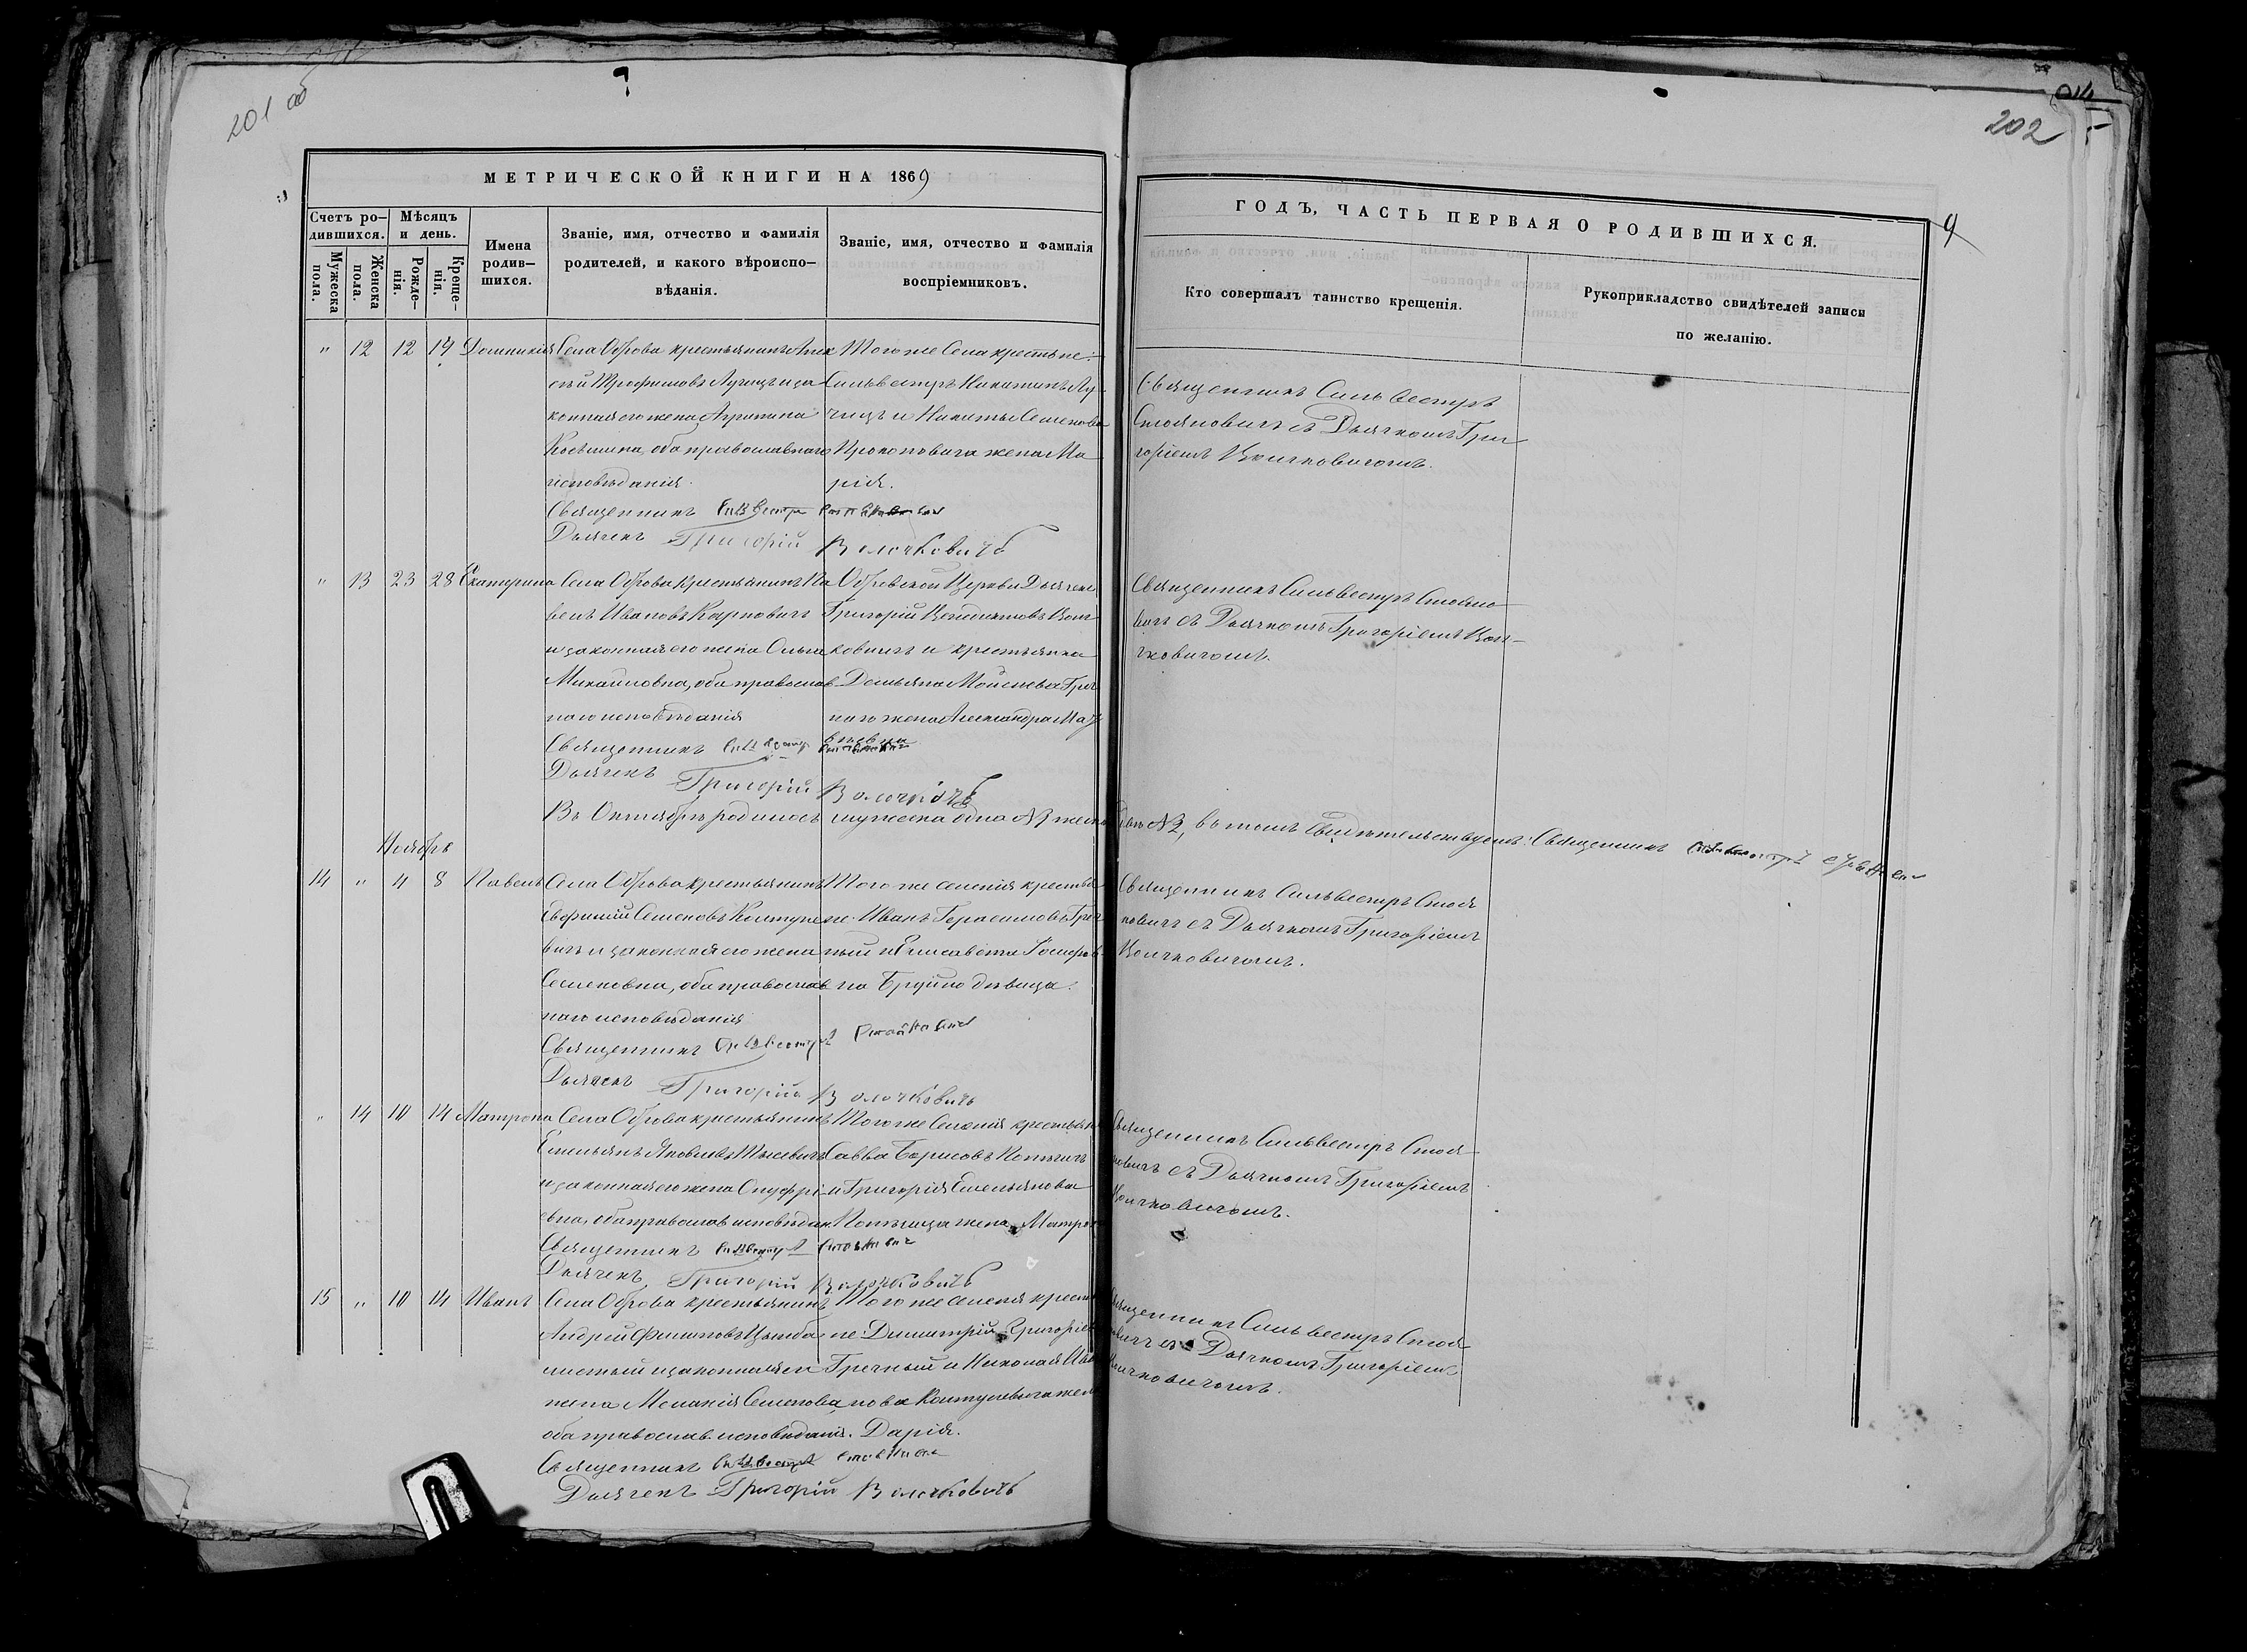 201 об
202
МЕТРИЧЕСКОЙ КНИГИ НА 1869
ГОДЪ, ЧАСТЬ ПЕРВАЯ О РОДИВШИХСЯ.
Счетъ ро-
дившихся.
Мужеска
пола.
Женска
пола.
Мѣсяцъ
и день.
Рожде-
нія.
Креще-
нія.
Имена
родив-
шихся.
Званіе, имя, отчество и фамилія
родителей, и какого вѣроиспо-
вѣданія.
Званіе, имя, отчество и фамилія
воспріемниковъ.
Кто совершалъ таинство крещенія.
Рукоприкладство свидѣтелей записи
по желанію.
" 12 12 19 Домникія
Села Оброва крестьянинъ Алек
сѣй Трофимовъ Лущицъ и за
конная его жена Агрипина
оба православнаго
исповѣданія.
Священникъ Сильвестръ Стояновичъ
Дьячекъ Григорій Волочковичъ
Того же Села крестьяне:
Сильвестръ Никитинъ Лу
щицъ и Никиты Семенова
Прокоповича жена Ма
рія.
Священникъ Сильвестръ
Стояновичъ съ Дьячкомъ Гри
горіемъ Волочковичомъ.
" 13 23 28 Екатерина
Села Оброва крестьянинъ Па
велъ Ивановъ Карповичъ
и законная его жена Ольга
Михайловна, оба православ
наго исповѣданія
Священникъ Сильвестръ Стояновичъ
Дьячекъ Григорій Волочковичъ
Обровской Церкви Дьячекъ
Григорій Венедиктовъ Волоч
ковичъ и крестьянка
Демьяна Моисеева Греч
наго жена Александра Мат
вѣевна
Священникъ Сильвестръ Стояно
вичъ съ Дьячкомъ Григоріемъ Воло
чковичомъ.
Въ Октябрѣ родилось мужеска одно №1 женска двѣ №2, въ томъ свидѣтельствуемъ: Священникъ Сильвестръ Стояновичъ
Ноябрь
14 " 4 8 Павелъ
Села Оброва крестьянинъ
Евфимій Семеновъ Колтуне
вичъ и законная его жена
Семеновна, оба православ
наго исповѣданія
Священникъ Сильвестръ Стояновичъ
Дьячекъ Григорій Волочковичъ
Того же селенія крестья
не: Иванъ Герасимовъ Греч
ный и Елисавета Іосифов
на Бруйло дѣвица.
Священникъ Сильвестръ Стоя
новичъ съ Дьячкомъ Григоріемъ
Волочковичомъ.
" 14 10 14 Матрона
Села Оброва крестьянинъ
Емельянъ Яковлевъ
и законная его жена Онуфрі
евна, оба православ. исповѣдан
Священникъ Сильвестръ Стояновичъ
Дьячекъ Григорій Волочковичъ
Того же Селенія крестьяне
Савва Борисовъ
и Григорія Емельянова
жена Матрона
Священникъ Сильвестръ Стоя
новичъ съ Дьячкомъ Григоріемъ
Волочковичомъ.
15 " 10 14 Иванъ
Села Оброва крестьянинъ
Андрей Филиповъ Цымба
листый и законная его
жена Меланія Семенова,
оба православ. исповѣданія.
Священникъ Сильвестръ Стояновичъ
Дьячекъ Григорій Волочковичъ
Того же селенія крестья
не: Димитрій Григорьевъ
Гречный и Николая Ива
нова Колтуневича жена
Дарія.
Священникъ Сильвестръ Стоя
новичъ съ Дьячкомъ Григоріемъ
Волочковичомъ.